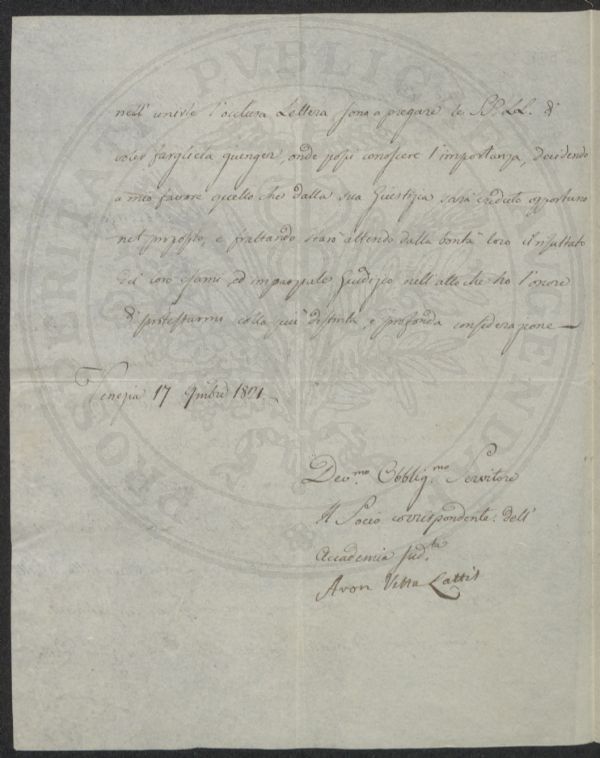 PROSPERITATI PUBLICAE AUGENDAE
nell' unirle l'occlusa Lettera sono a pregare le S.S. L.L. di
voler fargliela, onde possi conoscere l'importanza, decidendo
a mio favore quello che dalla sua Giustizia sarà creduto opportuno
nel proposto, e frattando starò attendo dalla bontà loro il risultato
del loro esame ed imparziale Giudizio nell' atto che ho l'onore
di protestarmi colla più distinta, e profonda considerazione
Venezia 17 9mbre 1801
Devmo. Obbligmo. Servitore
Il Socio corrispondente dell'
Accademia sudta.
Aron Vitta Lattis